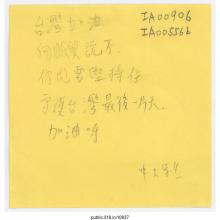 台灣加油
IA00906
IA00556b
向服貿說不.
你們要堅持住
守護台灣最後一片天.
加油呀
public.318.io/10937